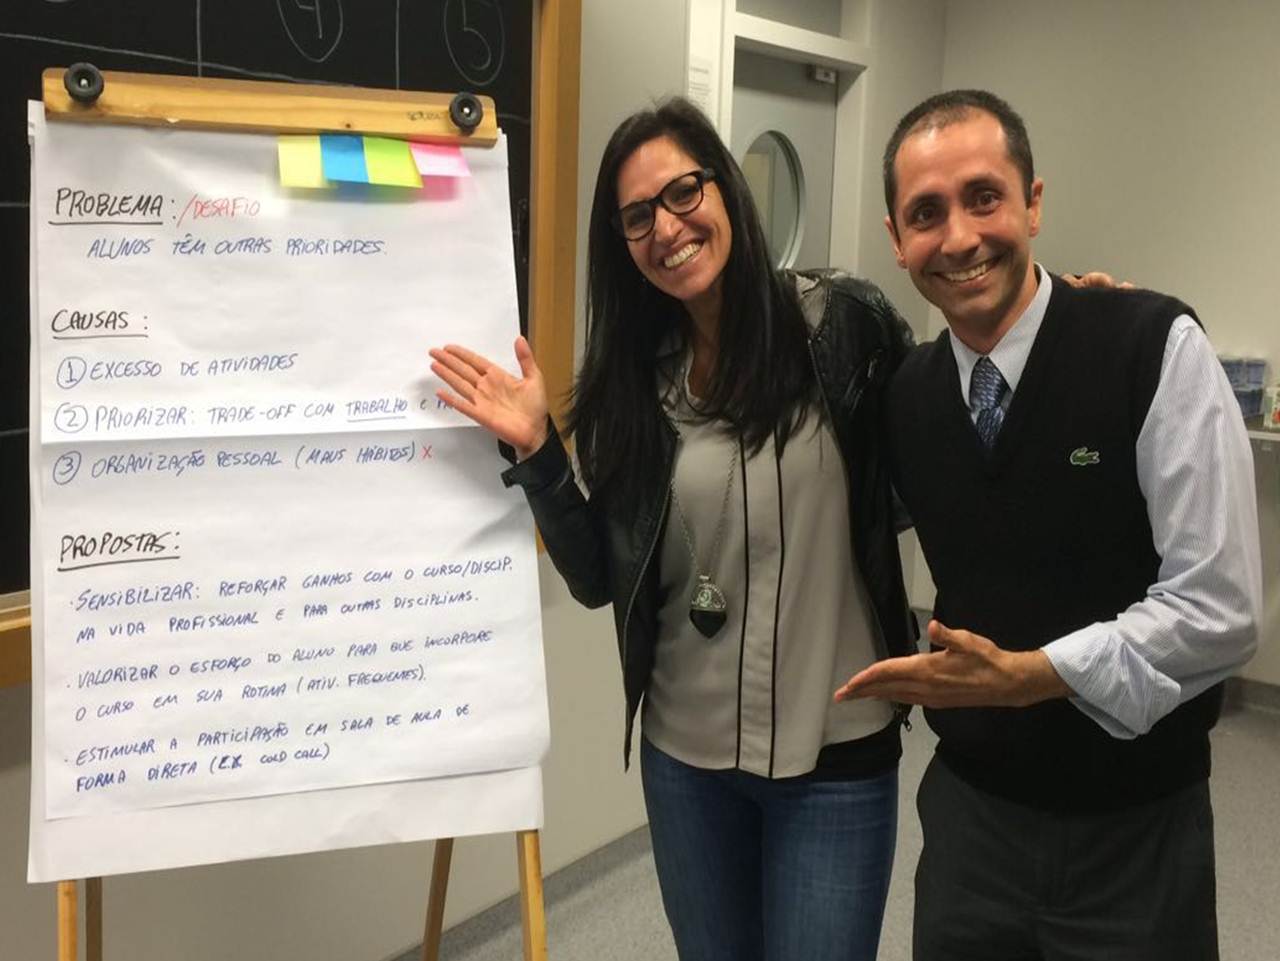 4
5
PROBLEMA: /DESAFIO
ALUNOS TÊM OUTRAS PRIORIDADES.
CAUSAS:
1 EXCESSO DE ATIVIDADES
2 PRIORIZAR: TRADE-OFF COM TRABALHO E
3 ORGANIZAÇÃO PESSOAL (MAUS HÁBITOS) X
PROPOSTAS:
· SENSIBILIZAR: REFORÇAR GANHOS COM O CURSO/DISCIP.
NA VIDA PROFISSIONAL E PARA OUTRAS DISCIPLINAS.
· VALORIZAR O ESFORÇO DO ALUNO PARA QUE INCORPORE
O CURSO EM SUA ROTINA (ATIV. FREQUENTES).
· ESTIMULAR A PARTICIPAÇÃO EM SALA DE AULA DE
FORMA DIRETA (EX COLD CALL)